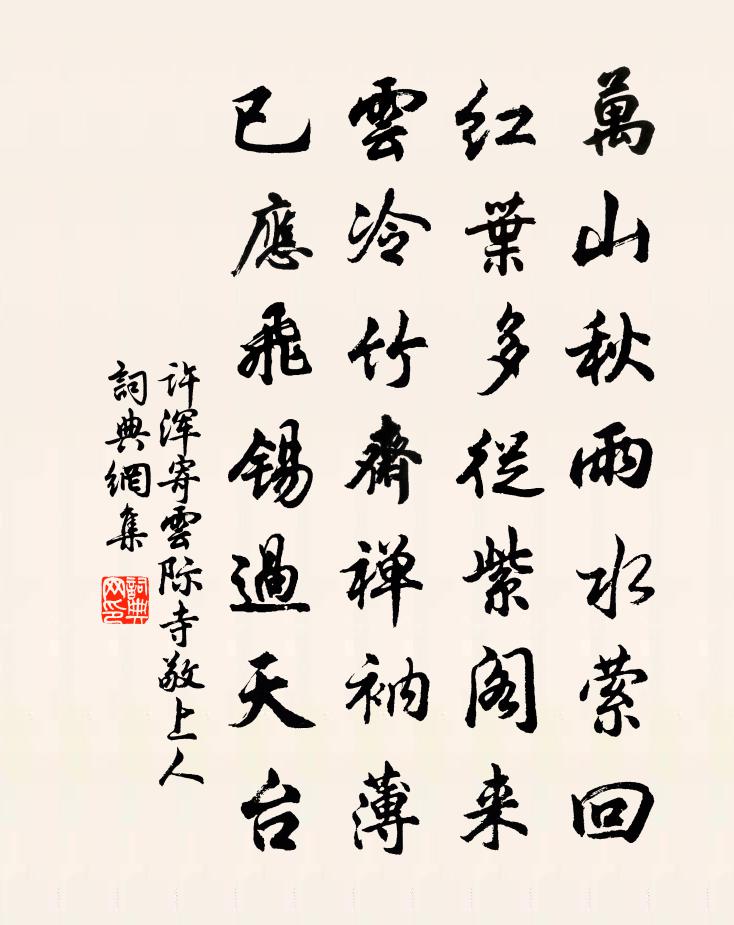 萬山秋雨水萦回
紅葉多從紫阁来
雲冷竹齋禅衲薄
已應飛錫過天台
许浑寄雲际寺敬上人
詞典網集
詞典网印